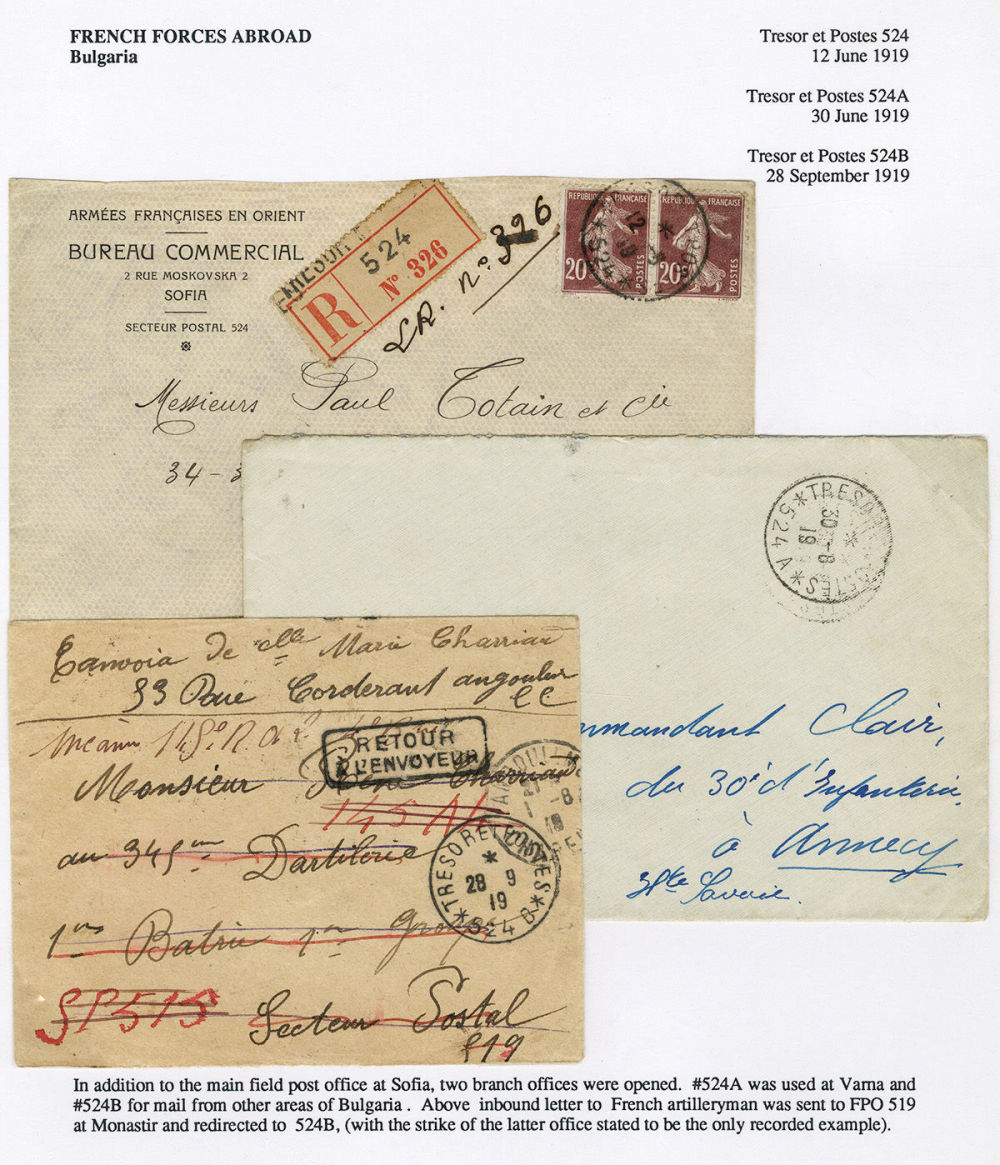 FRENCH FORCES ABROAD
Bulgaria
Tresor et Postes 524
12 June 1919
Tresor et Postes 524A
30 June 1919
Tresor et Postes 524B
28 September 1919
ARMÉES FRANÇAISES EN ORIENT
BUREAU COMMERCIAL
2 RUE MOSKOVSKA 2
SOFIA
SECTEUR POSTAL 524
524
R
N° 326
LR. n° 326
REPUBLIQUE FRANÇAISE
20c
POSTES
REPUBLIQUE FRANÇAISE
20c
POSTES
12
19
*524*
Messieurs Paul Totain et Cie
34-3
*TRESOR ET POSTES*
30
19
524A
mmandant Clair,
du 30e d'Infanterie
à Annecy
Hte Savoie.
de Mlle Marie Charriau
Corderant
RETOUR
A L'ENVOYEUR
Monsieur Charriau
145
au 345me Dartilerie
*TRESOR ET POSTES*
28 9
19
524 B
1re Batrie 1er Group
SP515
Secteur Postal
519
In addition to the main field post office at Sofia, two branch offices were opened. #524A was used at Varna and
#524B for mail from other areas of Bulgaria . Above inbound letter to French artilleryman was sent to FPO 519
at Monastir and redirected to 524B, (with the strike of the latter office stated to be the only recorded example).